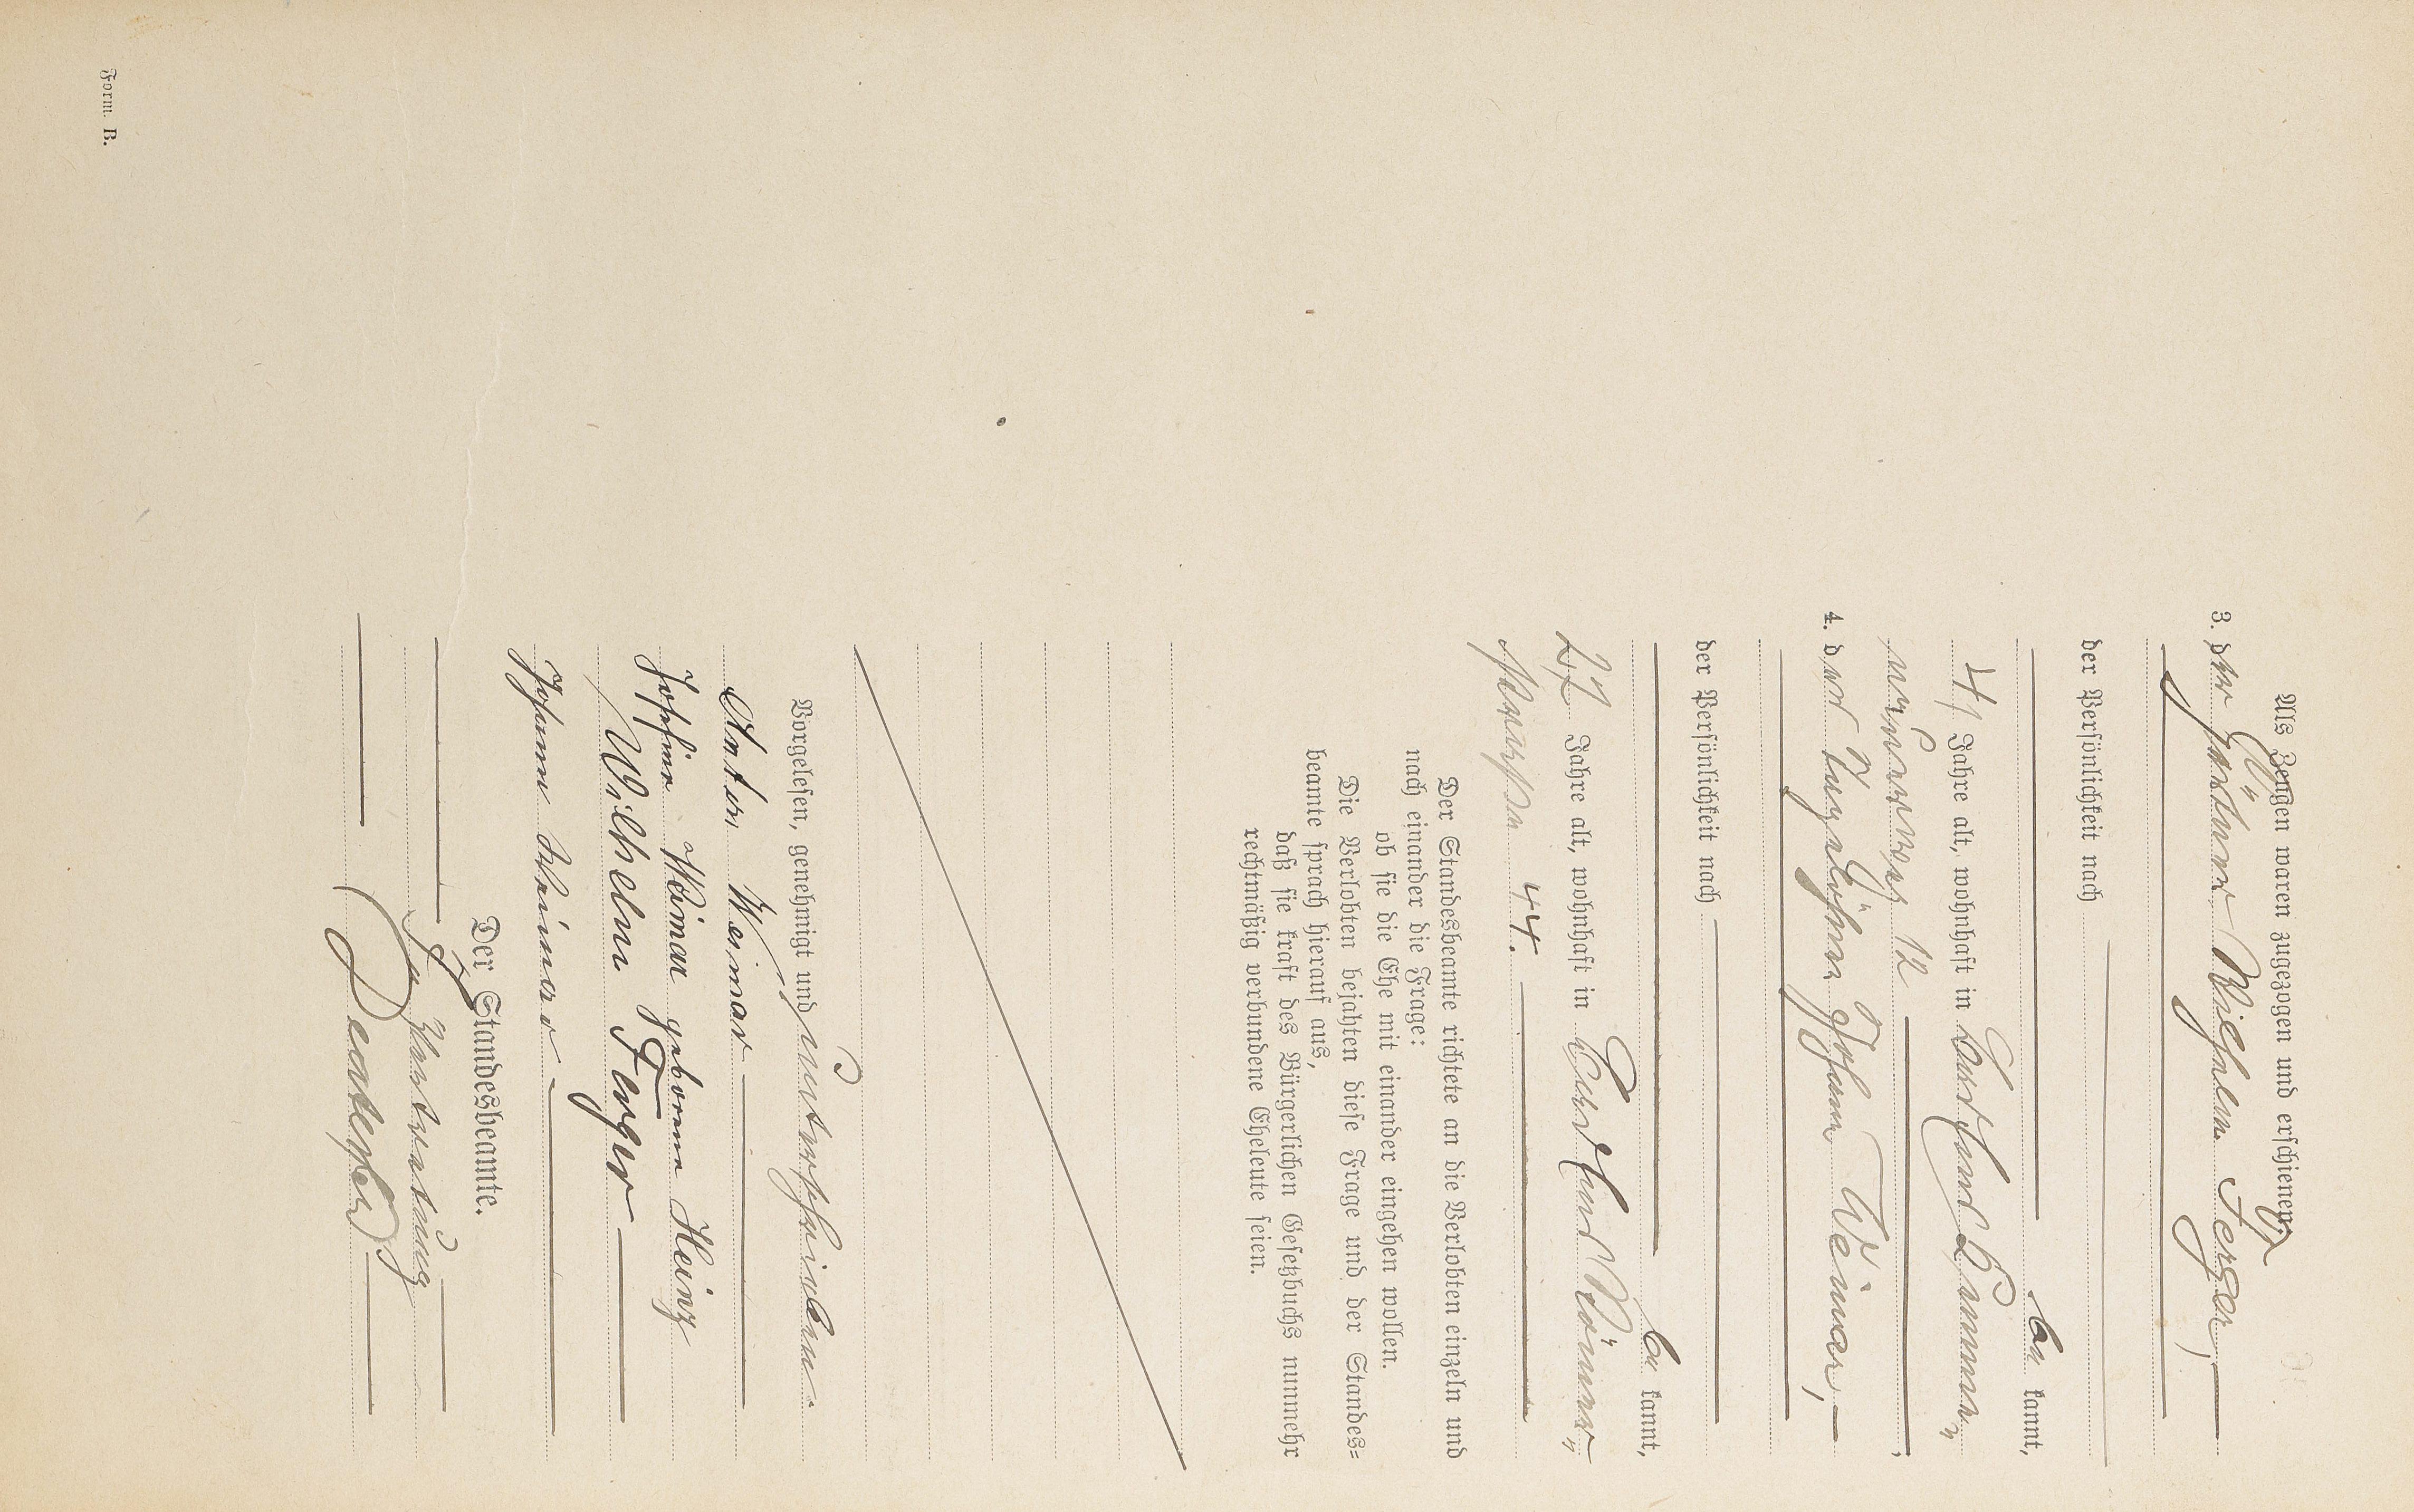 Als Zeugen waren zugezogen und erschienen:
3. der Gärtner Wilhelm Ferger,
der Persönlichkeit nach
be kannt,
41 Jahre alt, wohnhaft in Dortmund, Emmer„
12
4. der Tagelöhner Johann Weimar,
der Persönlichkeit nach
be kannt,
27 Jahre alt, wohnhaft in Dortmund, Körner„
straße 44.
Der Standesbeamte richtete an die Verlobten einzeln und
nach einander die Frage:
ob sie die Ehe mit einander eingehen wollen.
Die Verlobten bejahten diese Frage und der Standes=
beamte sprach hierauf aus,
daß sie kraft des Bürgerlichen Gesetzbuchs nunmehr
rechtmäßig verbundene Eheleute seien.
Vorgelesen, genehmigt und unterschrieben.
Anton Weimar
Josefine Weimar geborene Heinz
Wilhelm Ferger
Johann Weimar
Der Standesbeamte.
In Vertretung
Form. B.